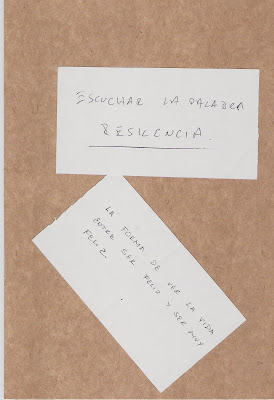 ESCUCHAR LA PALABRA
RESILENCIA.
LA FORMA DE VER LA VIDA
ENTRE SER FELIZ Y SER MUY
FELIZ